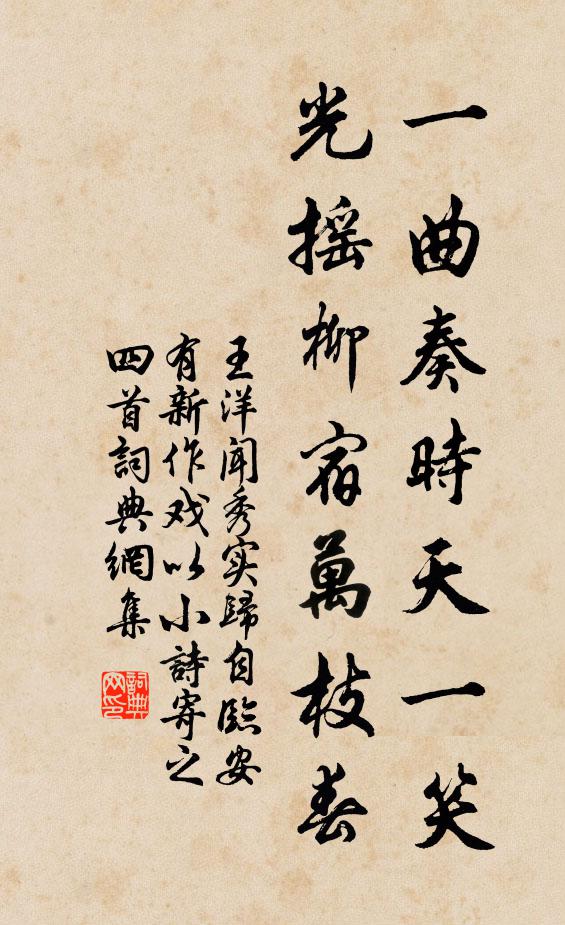 一曲奏時天一笑
光摇柳宿萬枝春
王洋闻秀实歸自臨安
有新作戏以小詩寄之
四首詞典網集
詞典
网印